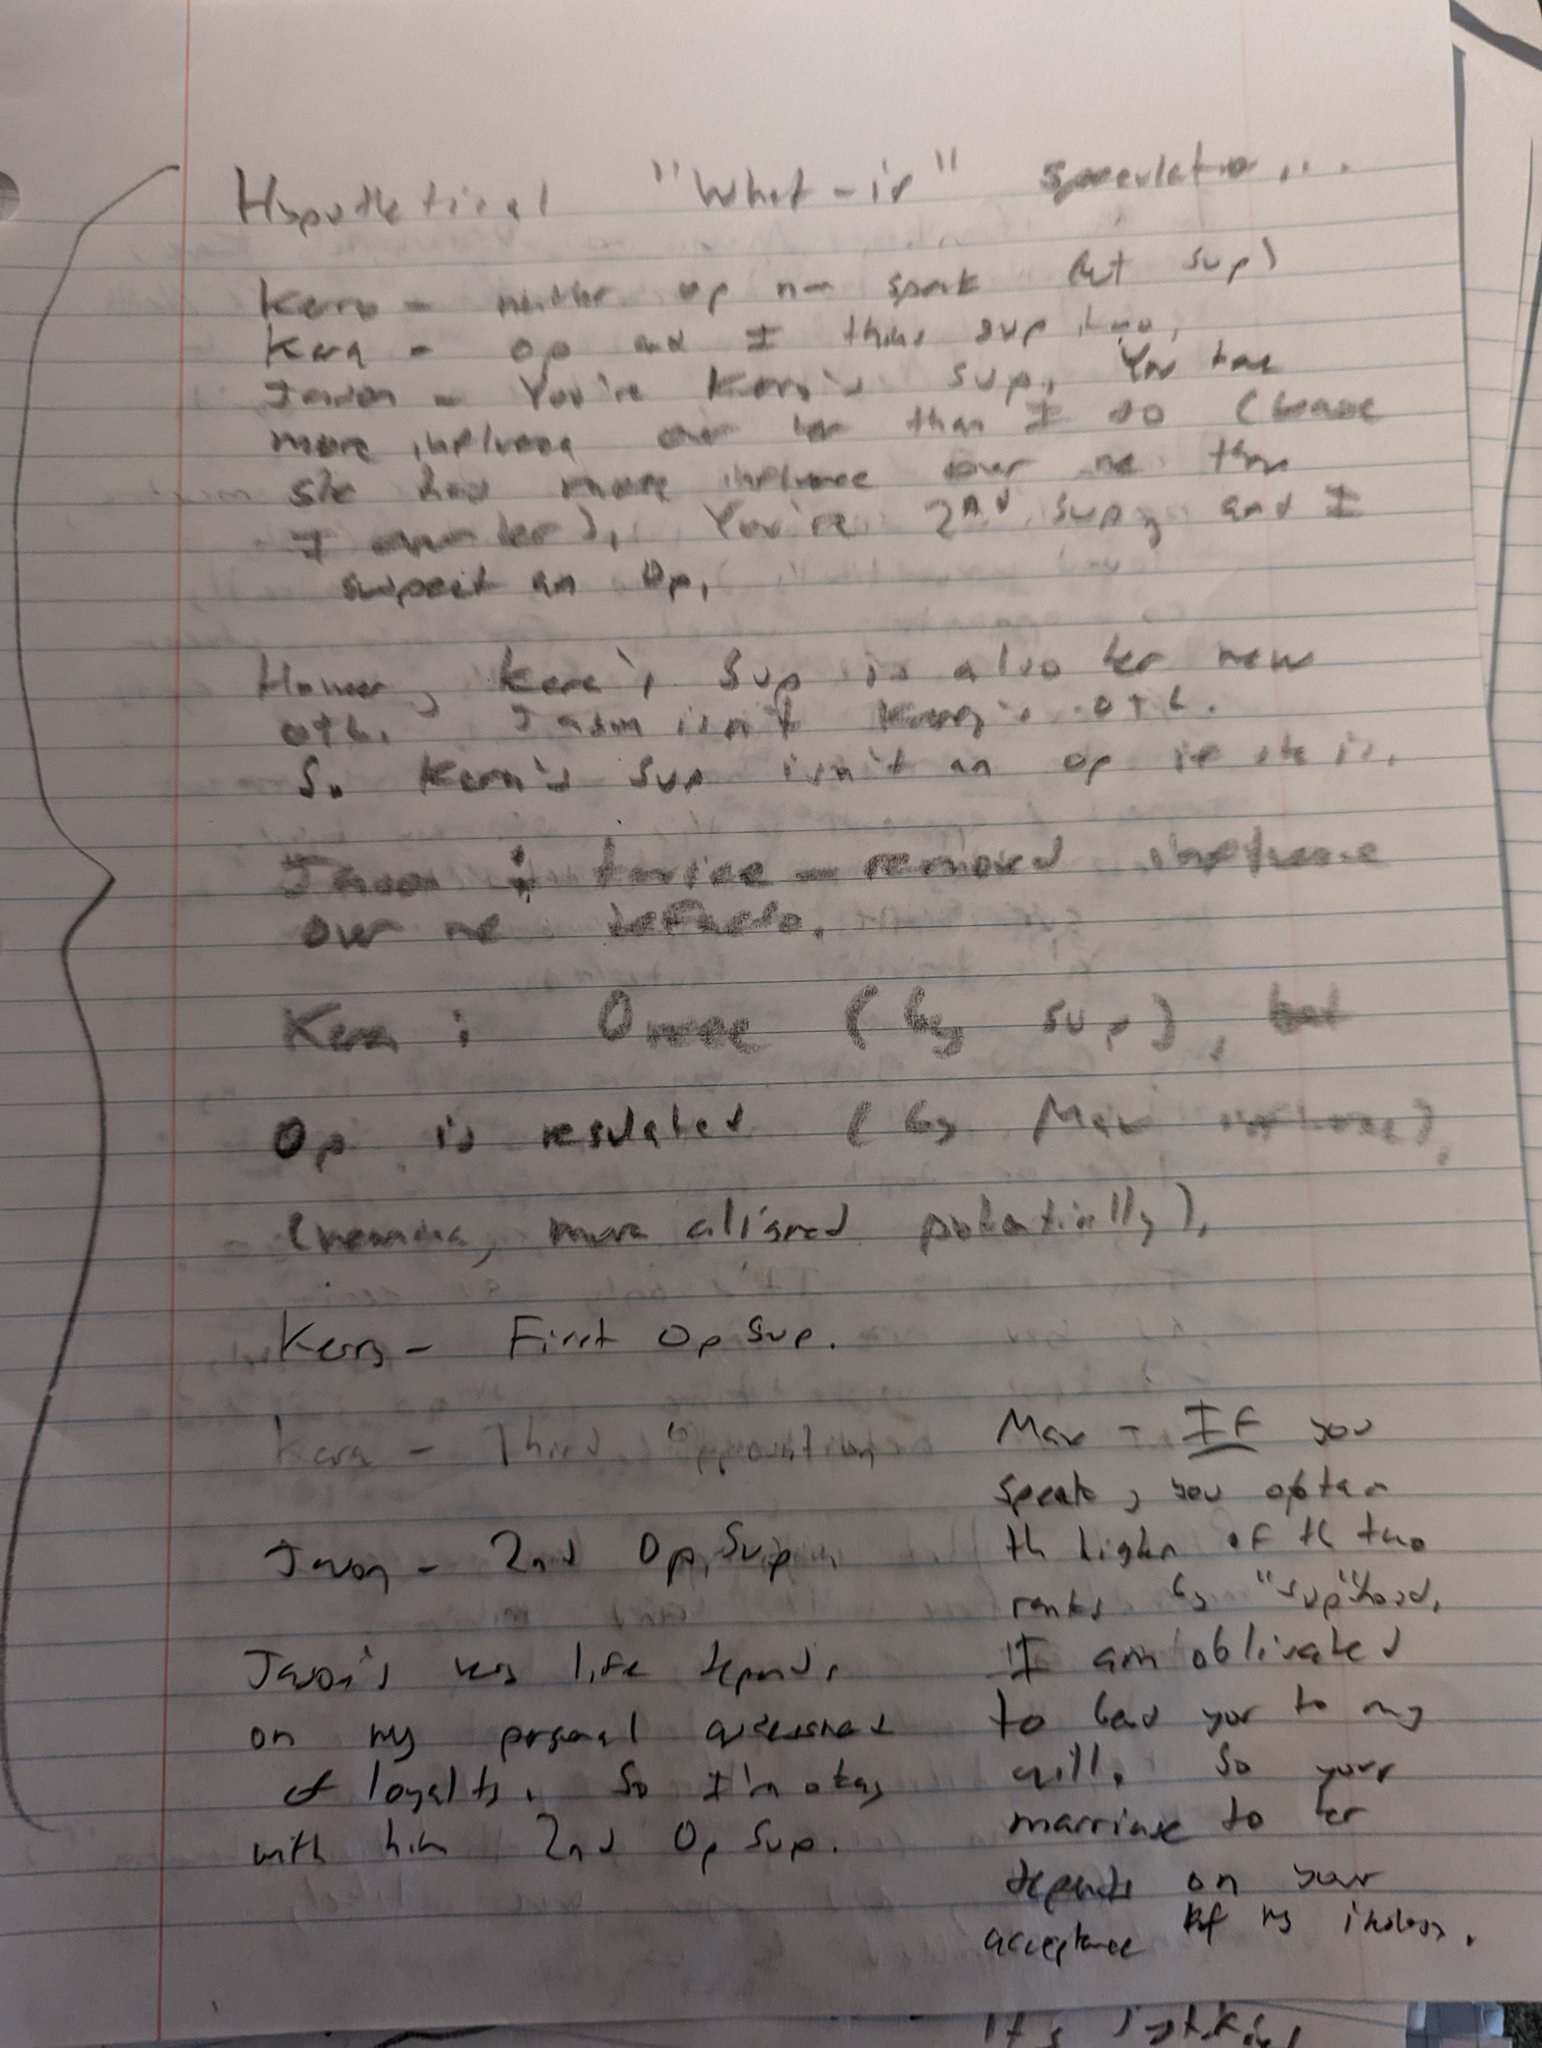 Hypothetical "What-if" speculation...
Kerry - neither op nor speak (but sup)
Kara - op and I think sup too.
Jason - You're Kerry's sup. You have
more influence over her than I do (because
she had more influence over me than
I over her). You're 2nd sup, and I
suspect an Op.
However, Kara's Sup is also her new
oth. Jason isn't Kerry's oth.
So Kara's Sup isn't an op if she is.
Jason : twice-removed influence
over me defacto.
Kara : Once (by sup), but
Op is regulated (by Max influence).
(meaning, more aligned potentially).
Kerry - First Op Sup.
Kara - Third "opposition
Jason - 2nd Op, Sup
Jason's very life depends
on my personal assessment
of loyalty. So I'm okay
with him 2nd Op Sup.
Max - IF you
speak, you obtain
the higher of the two
ranks by "sup"hood.
I am obligated
to bend your to my
will. So your
marriage to her
depends on your
acceptance of my
It's